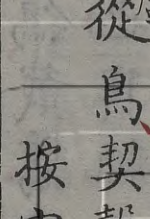 從鳥契
按